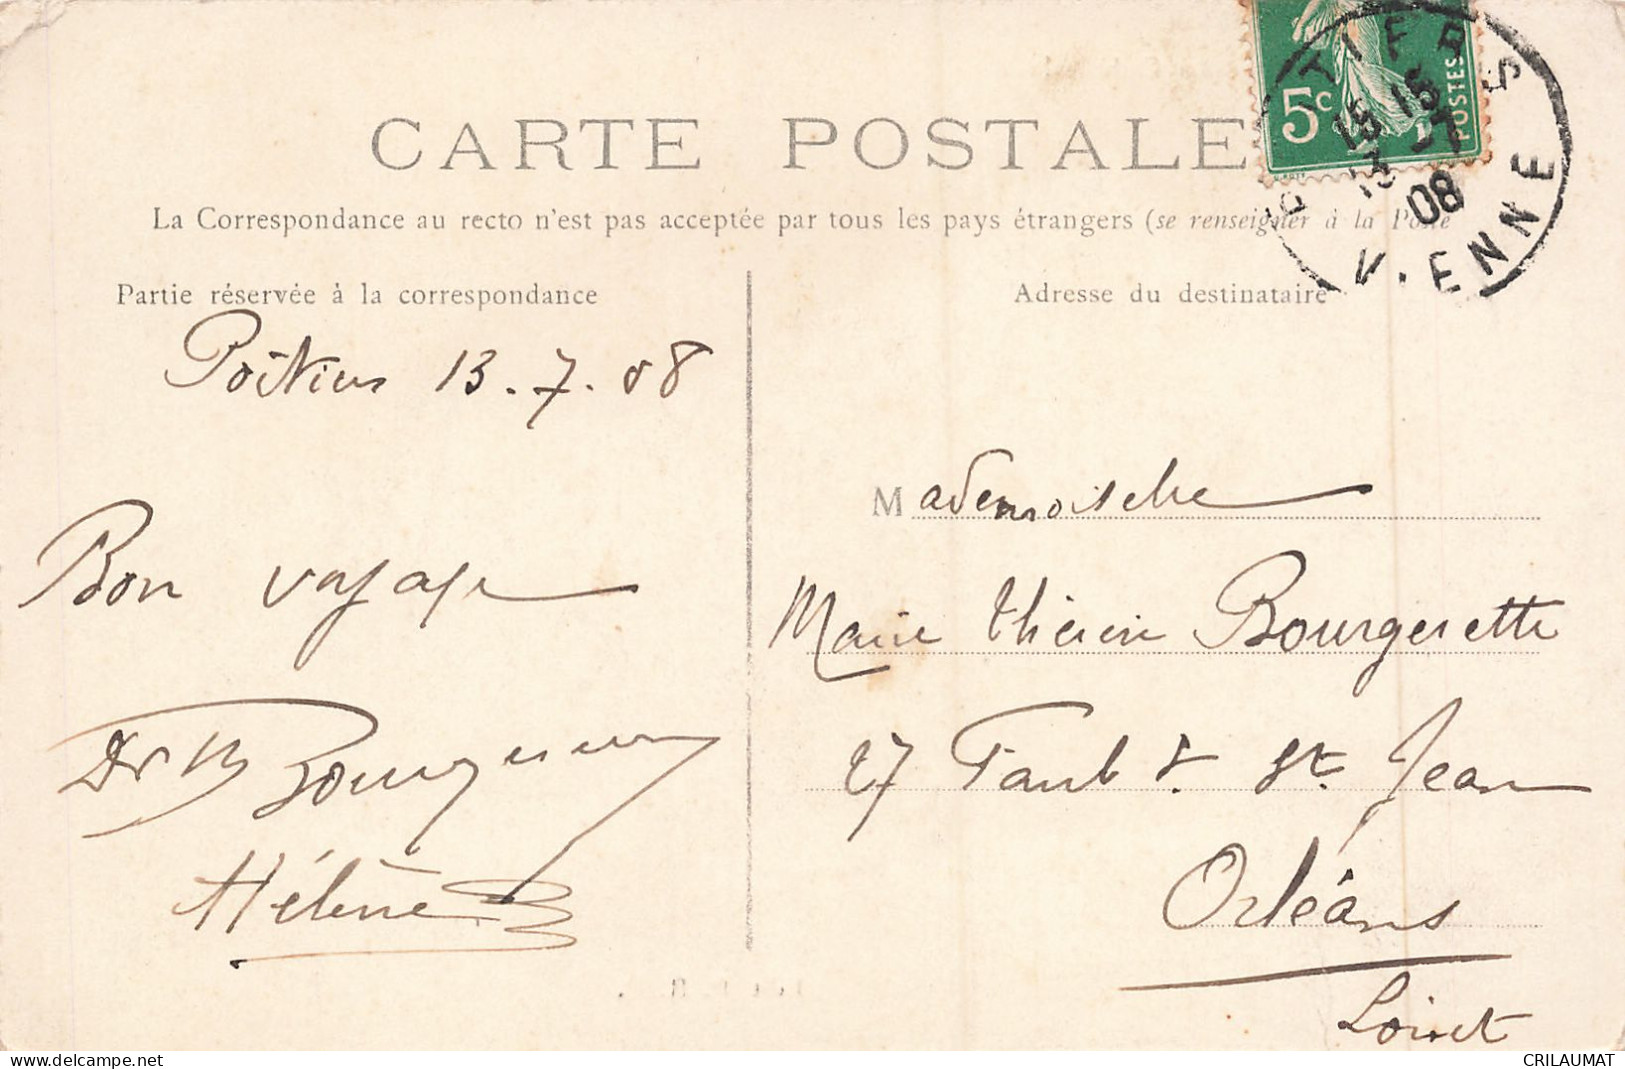 CARTE POSTALE
La Correspondance au recto n'est pas acceptée par tous les pays étrangers (se renseigner à la Poste
Partie réservée à la correspondance
Adresse du destinataire
5c
POSTES
15 15
13 -7
08
VIENNE
Poitiers 13.7.08
Bon voyage
Dr
Hélène
Mademoiselle
Marie Thérèse Bourgerette
27 Faub g. St. Jean
Orléans
Loiret
delcampe.net
CRILAUMAT